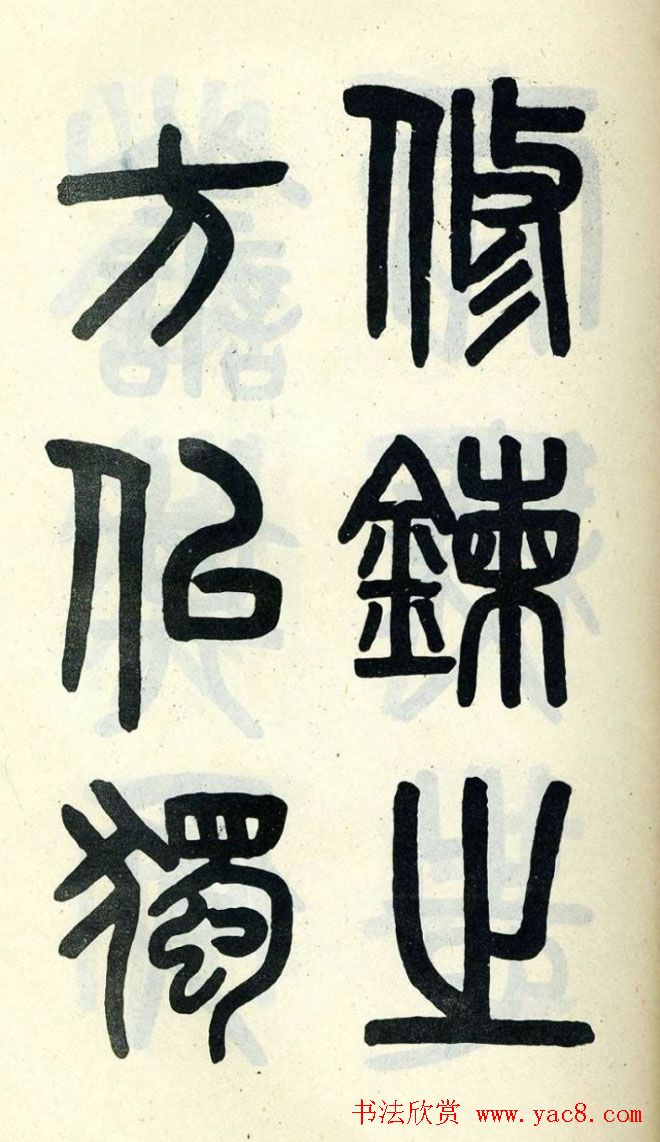 修鍊之
方似獨
书法欣赏 www.yac8.com